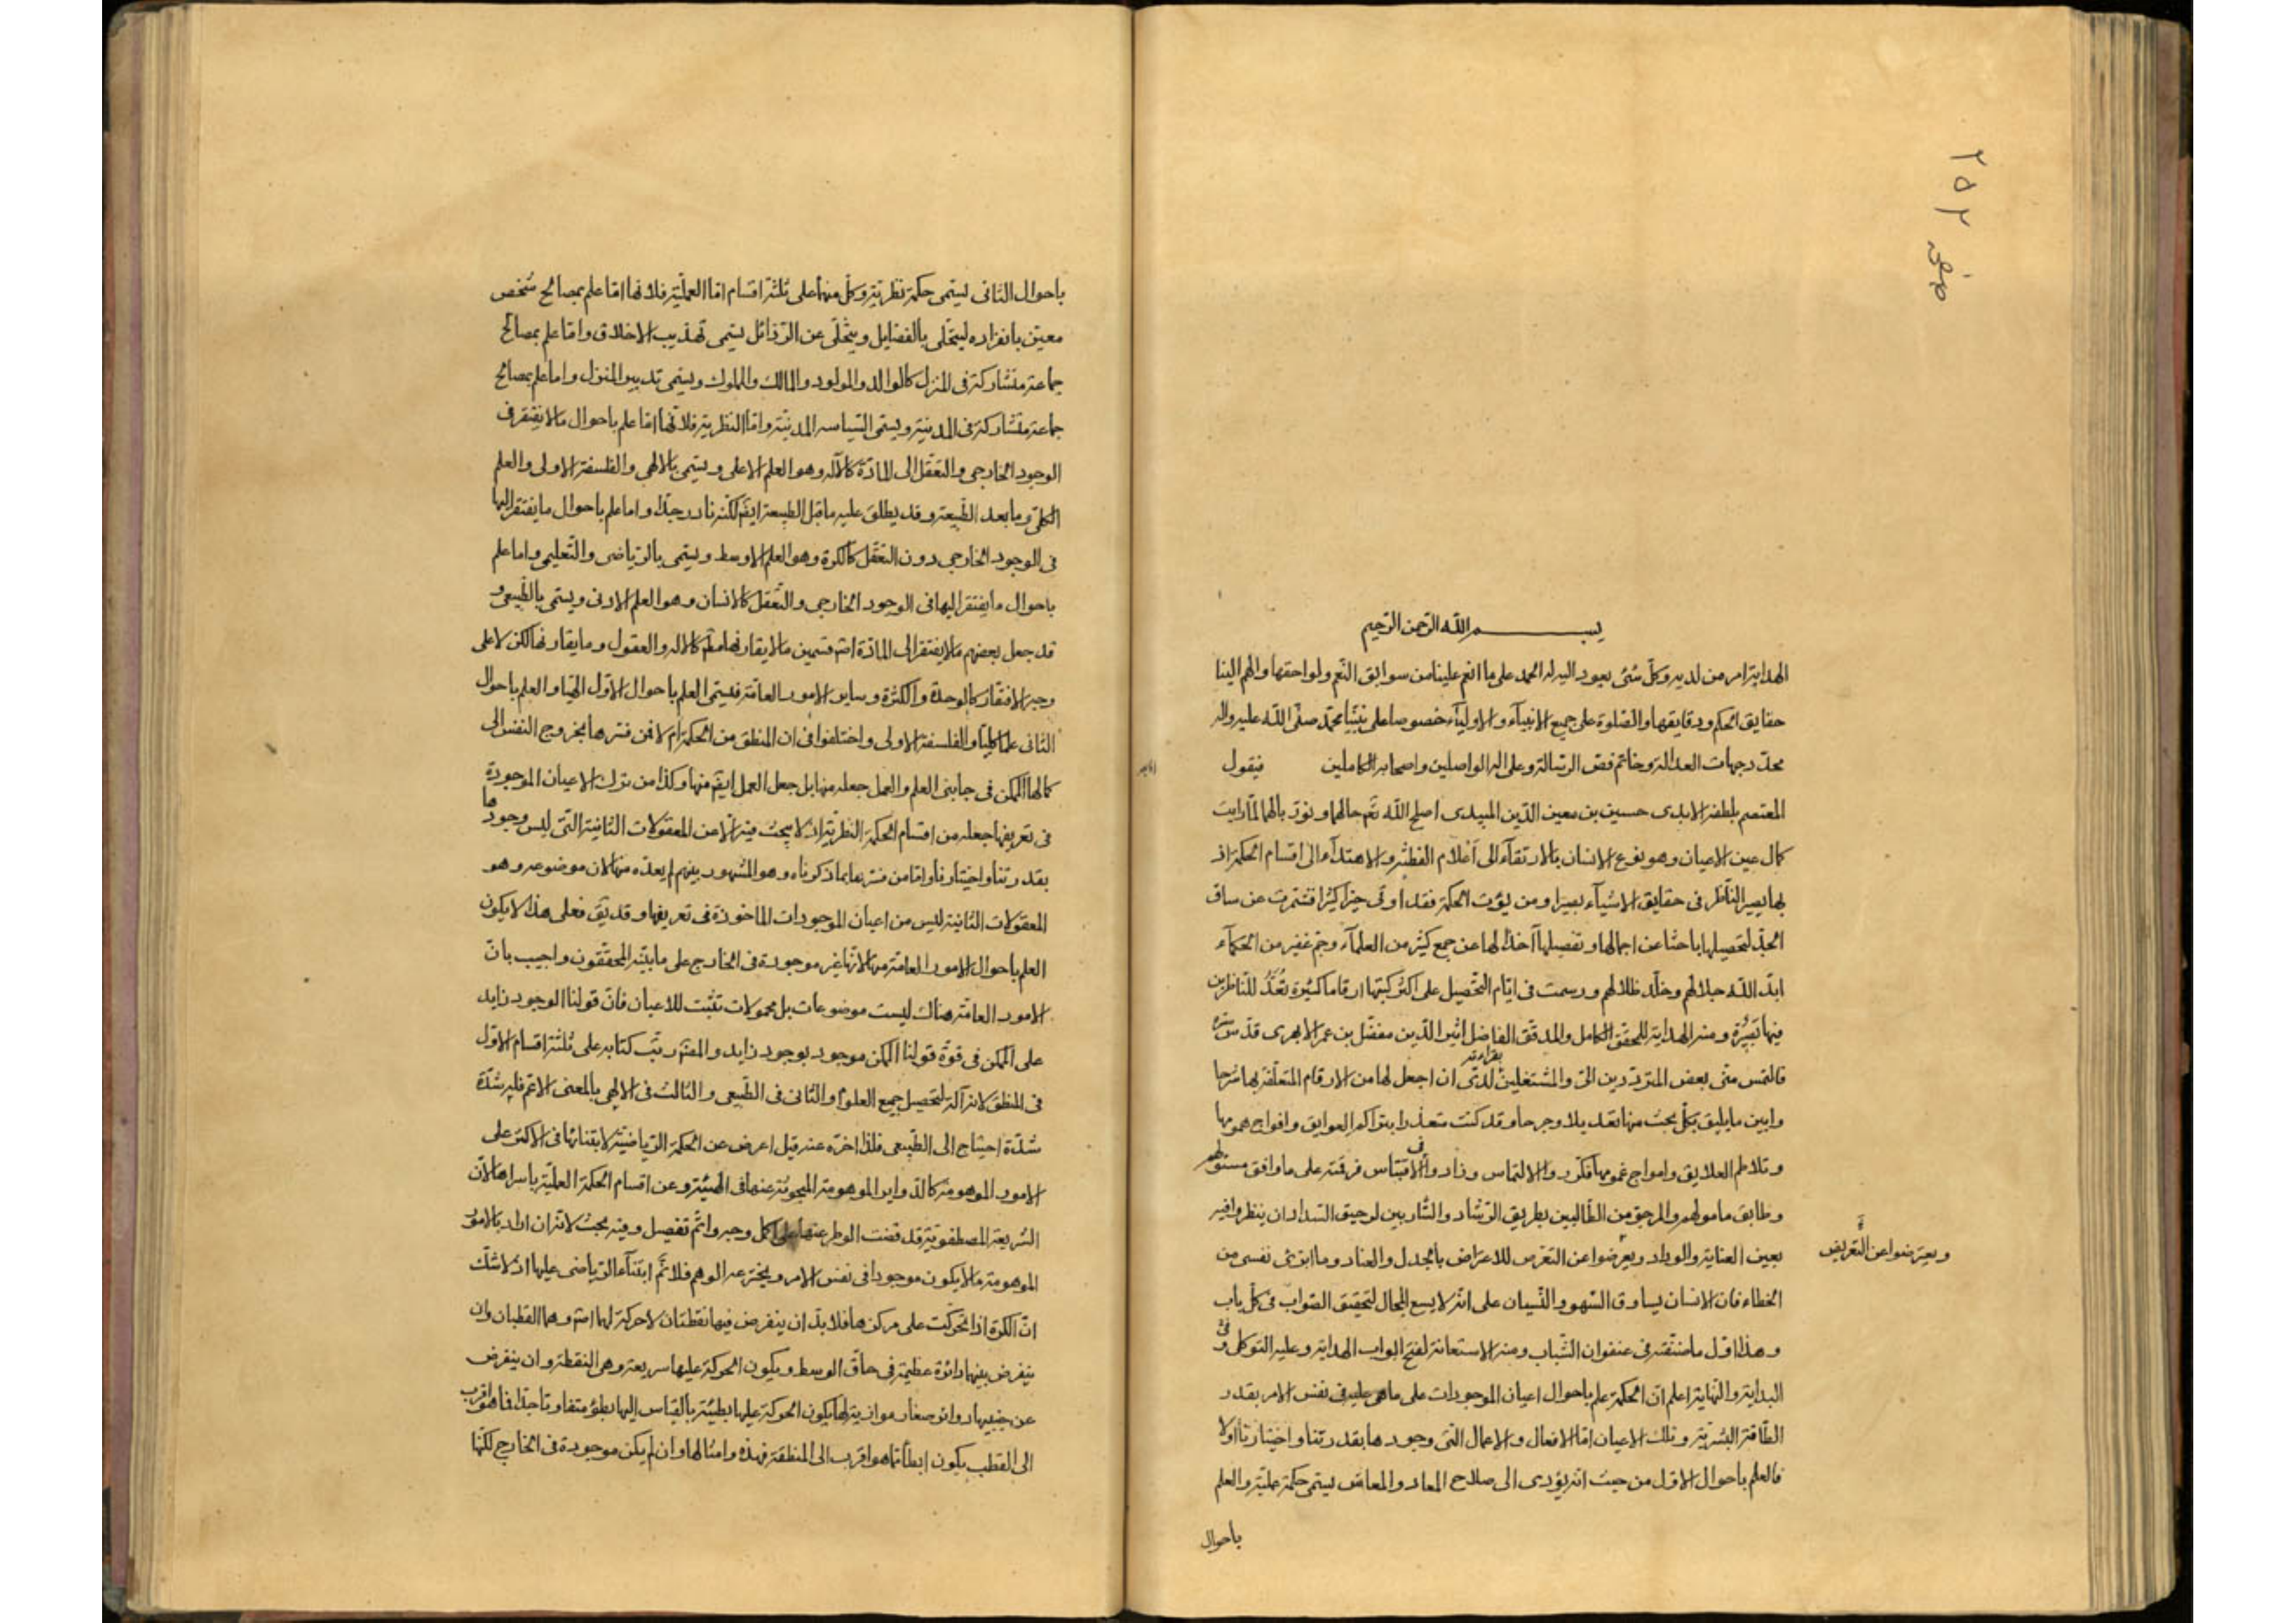 ٢٥٢
صفحه
بسم الله الرحمن الرحيم
الهداية امر من لديه وكل شئ يعود اليه له الحمد على ما انعم علينا من سوابق النعم ولواحقها والهم الينا
حقايق الحكم ودقايقها والصلوة على جميع الانبيآء والاوليآء خصوصا على نبينا محمد صلى الله عليه واله
محدد جهات العدالة وخاتم فص الرسالة وعلى اله الواصلين واصحابه الكاملين فيقول
المعتصم بلطفه الابدى حسين بن معين الدين الميبدى اصلح الله تع حالهما ونور بالهما لما رايت
كمال عين الاعيان وهو نوع الانسان بالارتقآء الى اعلام الفطنة والاهتدآء الى اقسام الحكمة اذ
بها يصير الناظر فى حقايق الاشيآء بصيرا ومن يؤت الحكمة فقد اوتى خيرا كثيرا فشمرت عن ساق
الجد لتحصيلها باحثا عن اجمالها وتفصيلها آخذا لها عن جمع كثير من العلمآء وجم غفير من الحكمآء
ابد الله جلالهم وخلد ظلالهم ورسمت فى ايام التحصيل على اكثر كتبها ارقاما كثيرة تعد للناظرين
فيها تبصرة ومنه الهداية للمحقق الكامل والمدقق الفاضل اثير الدين مفضل بن عمر الابهرى قدس سره
فالتمس منى بعض المترددين الى والمشتغلين بقراءته لدى ان اجعل لها من الارقام المتعلقة بها شرحا
وابين ما يليق بكل بحث منها تعديلا وجرحا وقد كنت متعذرا بتراكم العوايق وافواج همومها
وتلاطم العلايق وامواج غمومها فكرروا الالتماس وزادوا فى الاقتباس فرقته على ما وافق مسئولهم
وطابق مامولهم والمرجو من الطالبين بطريق الرشاد والشاربين لرحيق السداد ان ينظروا فيه
بعين العناية والوداد ويعرضوا عن التعرض للاعتراض بالجدل والعناد وما ابرئ نفسى من
ويعترضوا عن التعريض
الخطاء فان الانسان يساوق السهو والنسيان على انه لا يسع المجال لتحقيق الصواب فى كل باب
وهذا اول ما صنفته فى عنفوان الشباب ومنه الاستعانة لفتح ابواب الهداية وعليه التوكل فى
البداية والنهاية اعلم ان الحكمة علم باحوال اعيان الموجودات على ما هى عليه فى نفس الامر بقدر
الطاقة البشرية وتلك الاعيان اما الافعال والاعمال التى وجودها بقدرتنا واختيارنا اولا
فالعلم باحوال الاول من حيث انه يؤدى الى صلاح المعاد والمعاش يسمى حكمة عملية والعلم
باحوال
باحوال الثانى يسمى حكمة نظرية وكل منهما على ثلثة اقسام اما العملية فلانها اما علم بمصالح شخص
معين بانفراده ليتحلى بالفضايل ويتخلى عن الرذائل يسمى تهذيب الاخلاق واما علم بمصالح
جماعة متشاركة فى المنزل كالوالد والمولود والمالك والمملوك ويسمى تدبير المنزل واما علم بمصالح
جماعة متشاركة فى المدينة ويسمى السياسه المدنية واما النظرية فلانها اما علم باحوال ما لا يفتقر فى
الوجود الخارجى والتعقل الى المادة كالآله وهو العلم الاعلى ويسمى بالالهى والفلسفة الاولى والعلم
الكلى وما بعد الطبيعة وقد يطلق عليه ما قبل الطبيعة ايضم لكنه نادر جدا واما علم باحوال ما يفتقر اليها
فى الوجود الخارجى دون التعقل كالكرة وهو العلم الاوسط ويسمى بالرياضى والتعليمى واما علم
باحوال ما يفتقر اليها فى الوجود الخارجى والتعقل كالانسان وهو العلم الادنى ويسمى بالطبيعى و
قد جعل بعضهم ما لا يفتقر الى المادة اصم قسمين ما لا يقارنها مطم كالاله والعقول وما يقارنها لكن لا على
وجه الافتقار كالوحدة والكثرة وساير الامور العامة فيسمى العلم باحوال الاول الهيا والعلم باحوال
الثانى علما كليا والفلسفة الاولى واختلفوا فى ان المنطق من الحكمة ام لا فمن فسرها بخروج النفس الى
كمالها الممكن فى جانبى العلم والعمل جعله منها بل جعل العمل ايضم منها وكذا من ترك الاعيان الموجودة
فى تعريفها جعله من اقسام الحكمة النظرية اذ لا يبحث فيه الا عن المعقولات الثانية التى ليس وجودها
بقدرتنا واختيارنا واما من فسرها بما ذكرناه وهو المشهور بينهم لم يعده منها لان موضوعه وهو
المعقولات الثانية ليس من اعيان الموجودات الماخوذة فى تعريفها وقد يق فعلى هذا لا يكون
العلم باحوال الامور العامة منها لانها غير موجودة فى الخارج على ما بينه المحققون واجيب بان
الامور العامة هناك ليست موضوعات بل محمولات تثبت للاعيان فان قولنا الوجود زايد
على الممكن فى قوة قولنا الممكن موجود بوجود زايد والمصم رتب كتابه على ثلثة اقسام الاول
فى المنطق لانه آلة لتحصيل جميع العلوم والثانى فى الطبيعى والثالث فى الالهى بالمعنى الاعم فله شدة
شدة احتياج الى الطبيعى فلذا اخره عنه قيل اعرض عن الحكمة الرياضية لابتنائها فى الاكثر على
الامور الموهومة كالدواير الموهومة المبحوثة عنها فى الهيئة وعن اقسام الحكمة العملية باسرها لان
الشريعة المصطفوية قد قضت الوطر عنها على اكمل وجه واتم تفصيل وفيه بحث لانه ان اراد بالامور
الموهومة ما لا يكون موجودا فى نفس الامر ويخترعه الوهم فلا نم ابتنآء الرياضى عليها اذ لا شك
ان الكرة اذا تحركت على مركزها فلا بد ان ينفرض فيها نقطتان لا حركة لهما اصم وهما القطبان وان
ينفرض بينهما دائرة عظيمة فى حاق الوسط ويكون الحركة عليها سريعة وهى المنطقة وان ينفرض
عن جنبيها دوائر صغار موازية لها يكون الحركة عليها بطيئة بالقياس اليها بطؤ متفاوتا جدا فما هو اقرب
الى القطب يكون ابطأ مما هو اقرب الى المنطقة فهذه وامثالها وان لم يكن موجودة فى الخارج لكنها